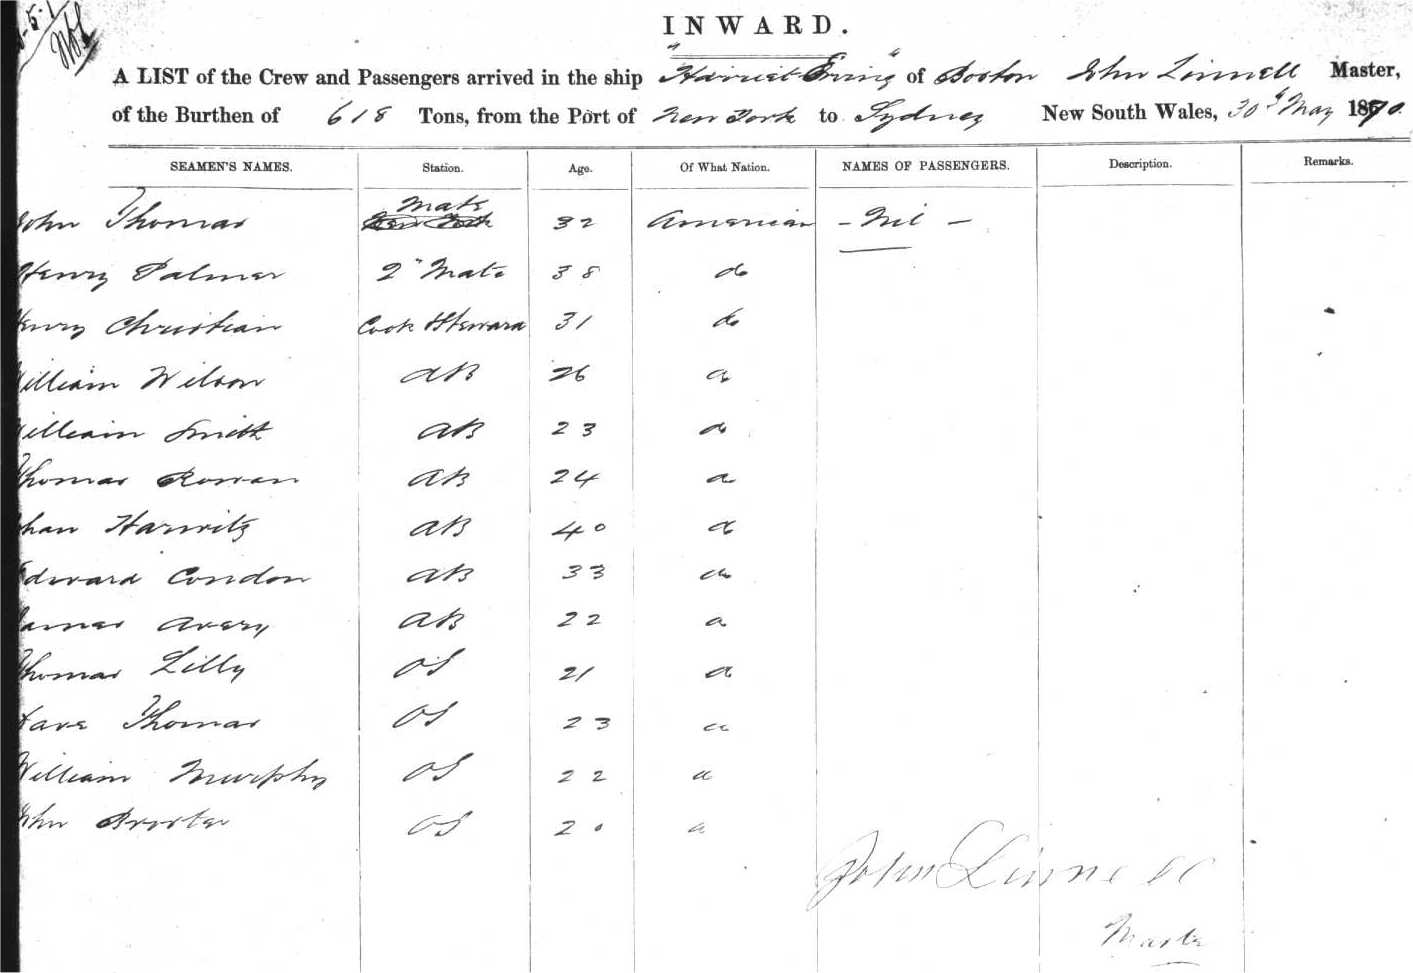 INWARD.
A LIST of the Crew and Passengers arrived in the ship "Harriet Erving" of Boston John Linnell Master,
of the Burthen of 618 Tons, from the Port of New York to Sydney New South Wales, 30th May 1870.
SEAMEN'S NAMES. Station. Age. Of What Nation. NAMES OF PASSENGERS. Description. Remarks.
John Thomas Mate 32 American - Nil -
Henry Palmer 2" Mate 38 do
Henry Christian Cook & Steward 31 do
William Wilson AB 26
William Smith AB 23
Thomas Rowan AB 24
Harwitz AB 40
Edward Condon AB 33
James Avery AB 22
Thomas Lilly OS 21
Thomas OS 23
William Murphy OS 22
John OS 20
John Linnell
Master